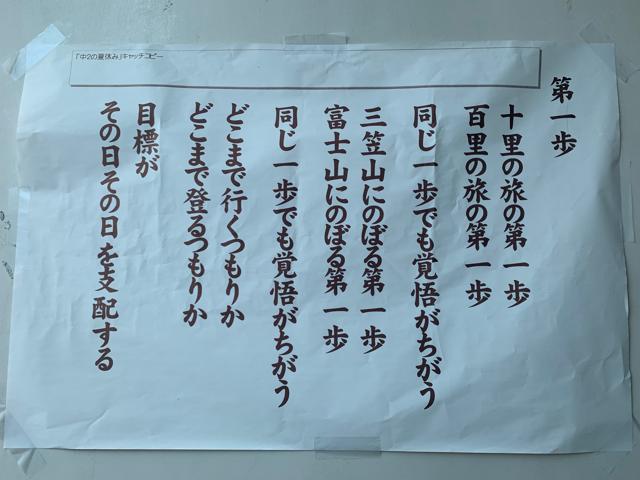 「中2の夏休み」キャッチコピー
第一歩
十里の旅の第一歩
百里の旅の第一歩
同じ一歩でも覚悟がちがう
三笠山にのぼる第一歩
富士山にのぼる第一歩
同じ一歩でも覚悟がちがう
どこまで行くつもりか
どこまで登るつもりか
目標が
その日その日を支配する